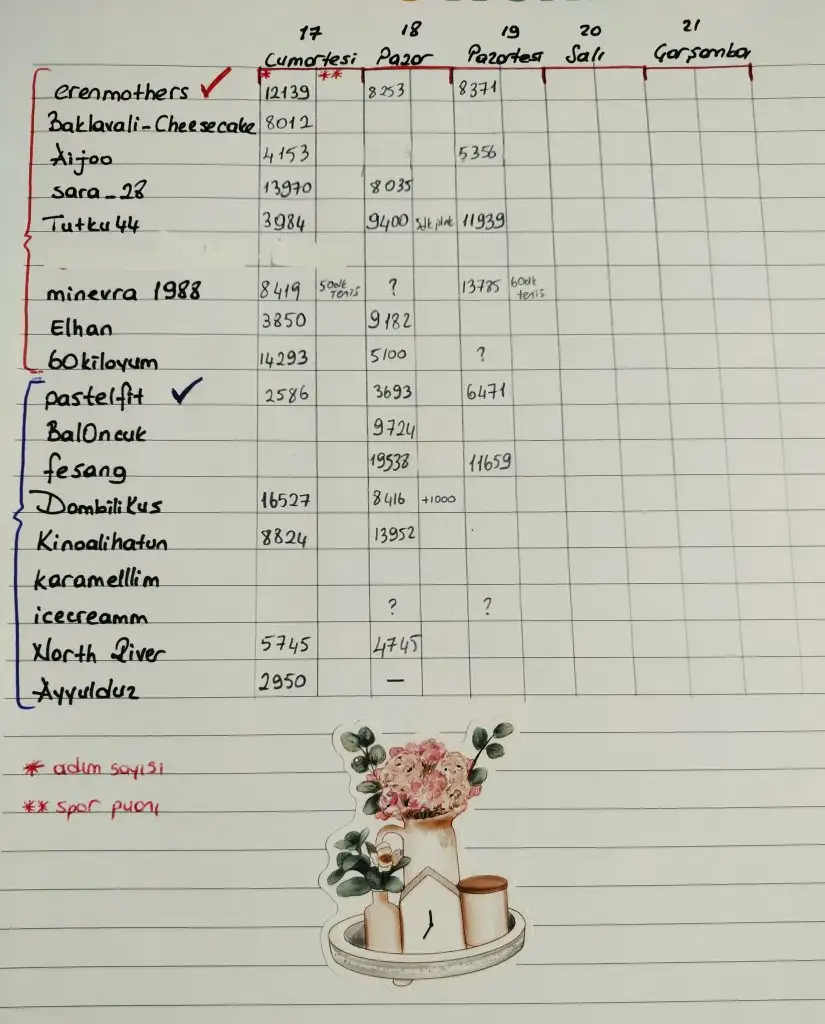 17 18 19 20 21
Cumartesi Pazar Pazartesi Salı Çarşamba
* **
erenmothers ✓ 12139 8253 8371
Baklavali-Cheesecake 8012
Aijoo 4153 5356
sara_28 13970 8035
Tutku44 3984 9400 11939
minevra 1988 8419 50dk tenis ? 13785 60dk tenis
Elhan 3850 9182
60kiloyum 14293 5100 ?
pastelfit ✓ 2586 3693 6471
BalOncuk 9724
fesang 19538 11659
DombiliKus 16527 8416 +1000
Kinoalihatun 8824 13952
karamelllim
icecreamm ? ?
North River 5745 4745
Ayyulduz 2950 —
* adım sayısı
** spor puanı